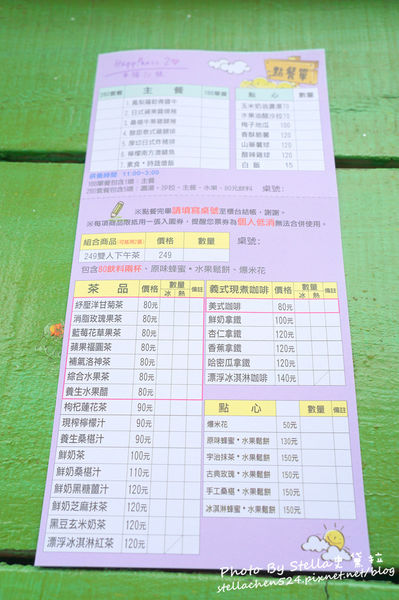 Happiness 20
幸福20號
點餐單
260套餐 主餐 100單餐
點心 數量
5. 厚切日式炸豬排
6. 檸檬南方濃鯛魚
7. 素食*時蔬燉飯
玉米奶油濃湯70
水果油醋沙拉70
梅子地瓜 100
香酥脆薯 110
山藥薯球 120
醋辣雞球 120
白飯 15
供餐時間 11:00~3:00
100單餐包含1項:主餐
260套餐包含5項:圓湯、沙拉、主餐、水果、80元飲料
桌號:
※點餐完畢請填寫桌號至櫃台結帳,謝謝。
※每項商品限抵用一張入園券,提醒您票券為個人低消無法合併使用。
組合商品(可抵用2張) 價格 數量
桌號:
249雙人下午茶 249
包含80飲料兩杯、原味蜂蜜*水果鬆餅、爆米花
茶品 價格 數量 冰 熱 備註
紓壓洋甘菊茶 80元
消脂玫瑰果茶 80元
藍莓花草果茶 80元
蘋果福圓茶 80元
補氣洛神茶 80元
綜合水果茶 80元
養生水果醋 80元
枸杞蓮花茶 90元
現榨檸檬汁 90元
養生桑椹汁 90元
鮮奶茶 100元
鮮奶桑椹汁 110元
鮮奶黑糖薑汁 120元
鮮奶芝麻抹茶 120元
黑豆玄米奶茶 120元
漂浮冰淇淋紅茶 120元
義式現煮咖啡 價格 數量 冰 熱 備註
美式咖啡 80元
鮮奶拿鐵 100元
杏仁拿鐵 120元
香蕉拿鐵 120元
哈密瓜拿鐵 120元
漂浮冰淇淋咖啡 140元
點心 數量 備註
爆米花 50元
原味蜂蜜*水果鬆餅 130元
宇治抹茶*水果鬆餅 150元
古典玫瑰*水果鬆餅 150元
手工桑椹*水果鬆餅 150元
冰淇淋蜂蜜*水果鬆餅 150元
Photo By Stella史黛拉
stellachen524.pixnet.net/blog